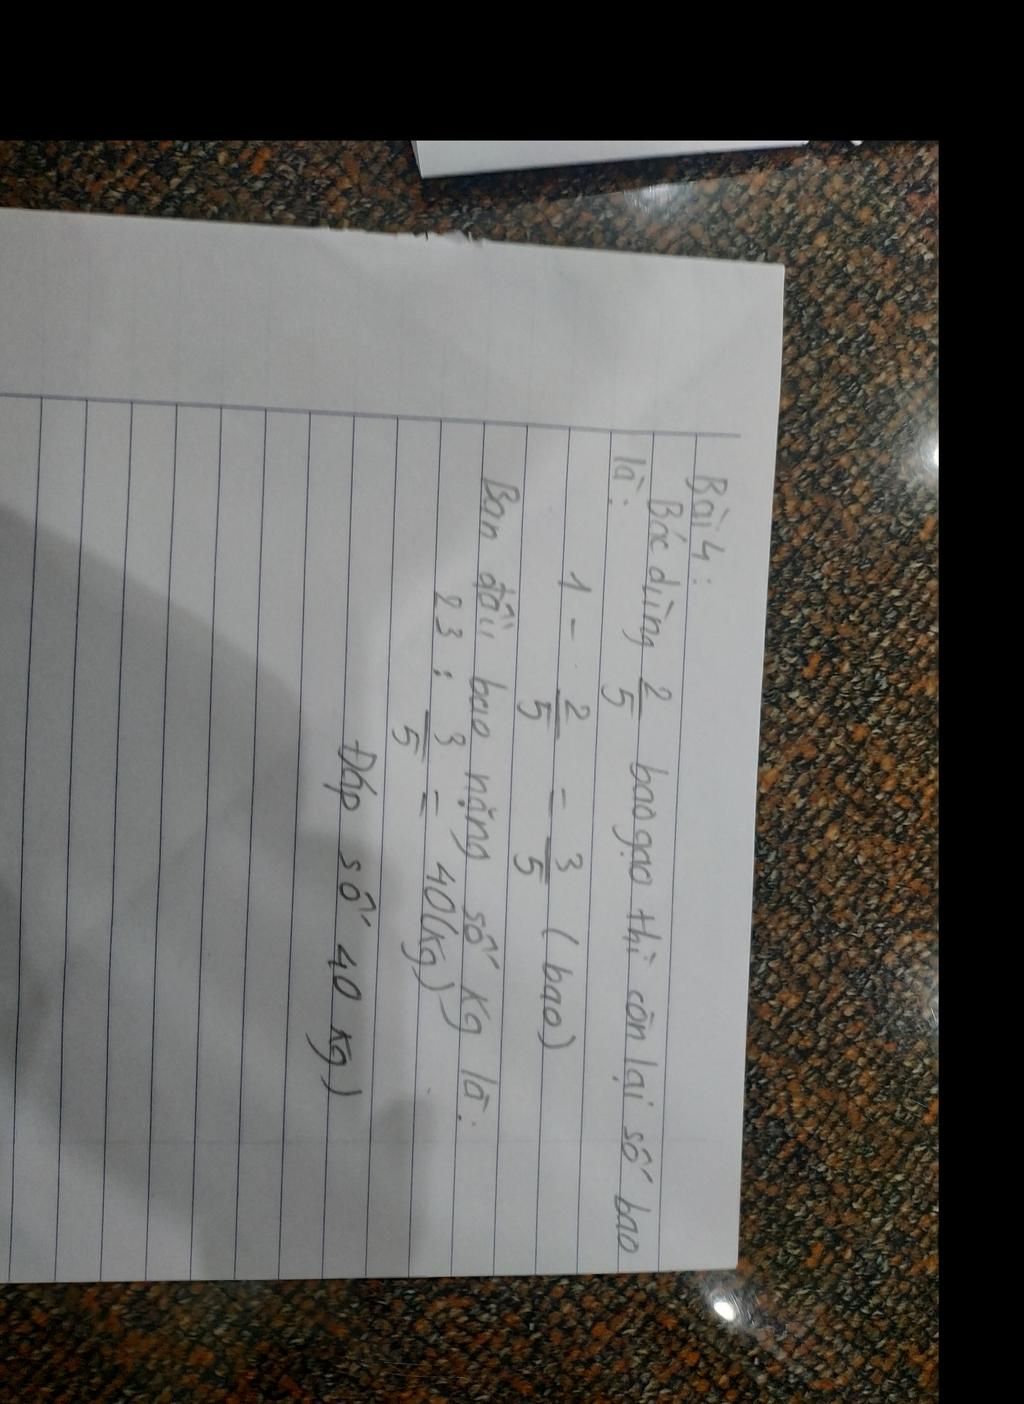 Bài 4:
Bác dùng 2/5 bao gạo thì còn lại số bao
là:
1 - 2/5 = 3/5 (bao)
Ban đầu bao nặng số kg là:
23 : 3/5 = 40(kg)
Đáp số 40 kg)